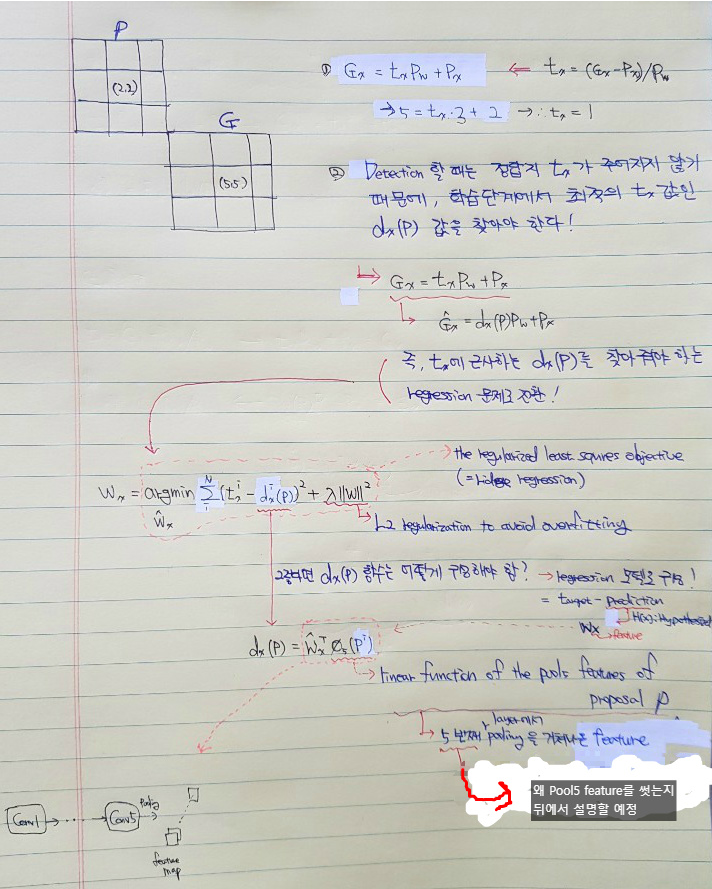 P
(2,2)
G
(5,5)
① Gx = tx Pw + Px ⇐ tx = (Gx - Px)/Pw
→ 5 = tx·3 + 2 → ∴ tx = 1
② Detection 할 때는 정답지 tx가 주어지지 않기
때문에, 학습단계에서 최적의 tx 값인
dx(P) 값을 찾아야 한다!
Gx = tx Pw + Px
Ĝx = dx(P)Pw + Px
즉, tx에 근사하는 dx(P)를 찾아줘야 하는
regression 문제로 전환!
the regularized least squres objective
(= ridge regression)
Wx = argmin Σ (tx^i - dx^i(P))² + λ||W||²
N
i
Ŵx
L2 regularization to avoid overfitting
그렇다면 dx(P) 함수는 어떻게 구성해야 함? → regression 모델로 구성!
= target - prediction
H(x): Hypothesis
Wx
feature
dx(P) = Ŵx^T ø5(P^i)
linear function of the pool5 features of
proposal P
5번째 layer에서 pooling을 거쳐나온 feature
왜 Pool5 feature를 썻는지
뒤에서 설명할 예정
Conv1 → ···· → Conv5 pooling →
feature
map